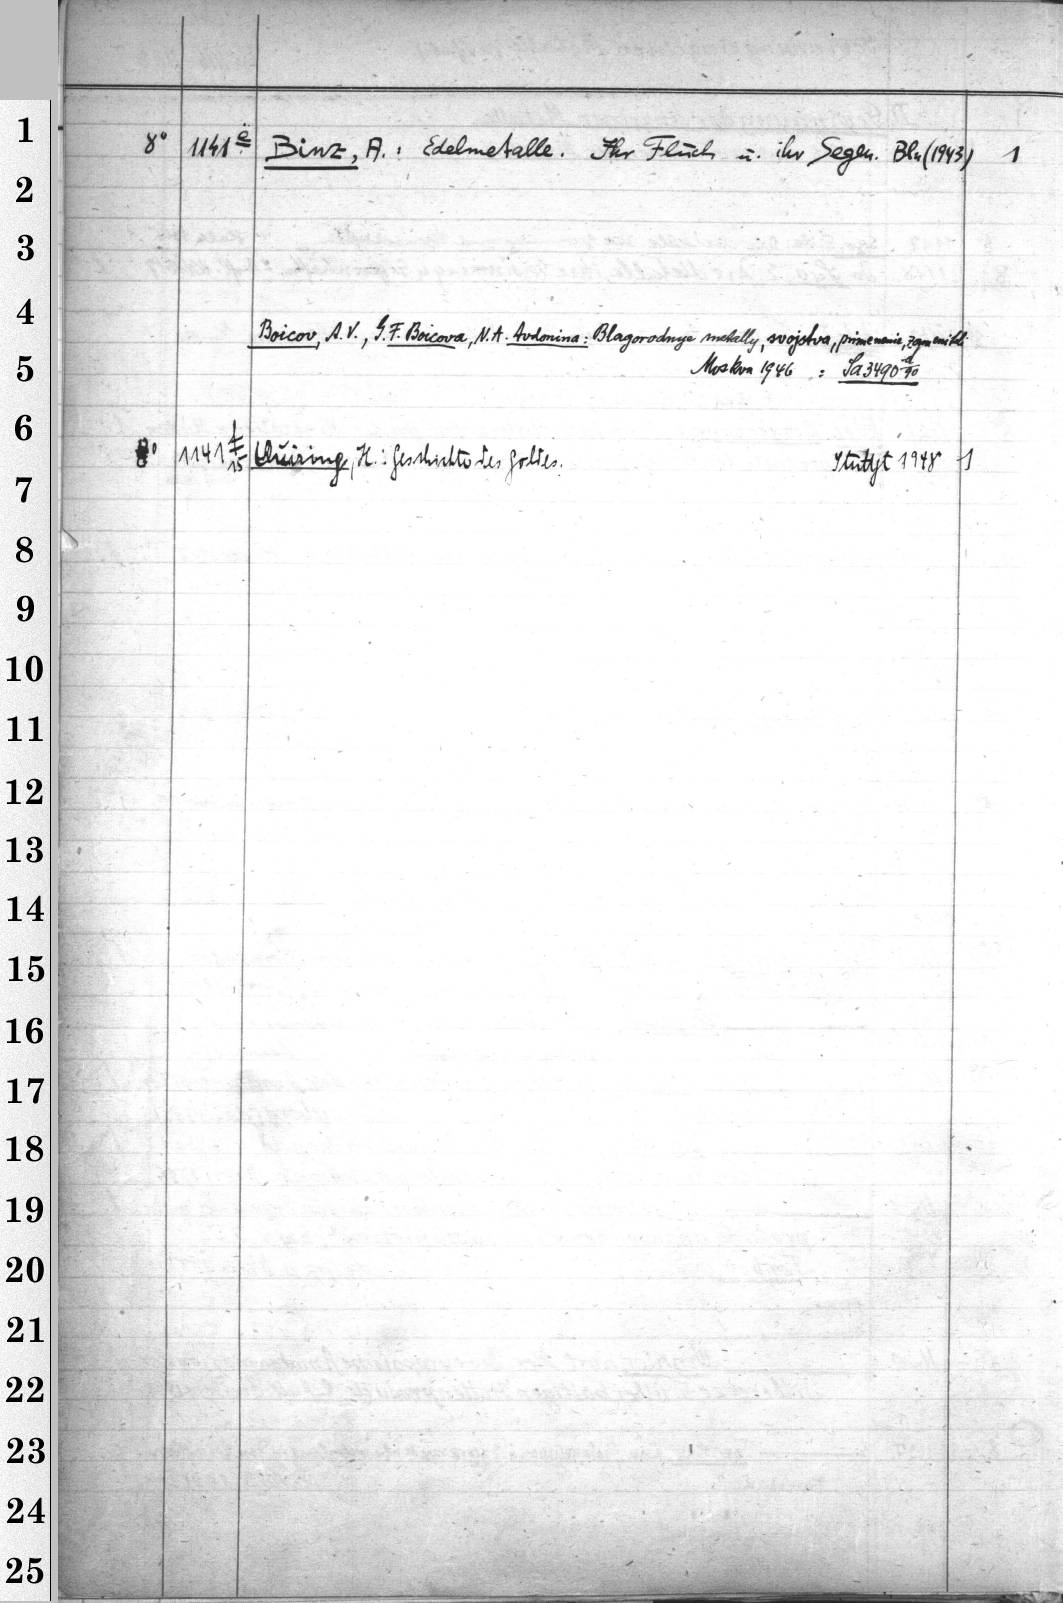 1
8° 1141 e Binz, A.: Edelmetalle. Ihr Fluch u. ihr Segen. Bln (1943) 1
2
3
4
Boicov, A.V., G.F. Boicova, N.A. Avdonina: Blagorodnye metally, svojstva, primenenie,
5
Moskva 1946 : Sa 3490 d/90
6
8° 1141 f/15 Quiring, H.: Geschichte des Goldes. Stuttgt 1948 1
7
8
9
10
11
12
13
14
15
16
17
18
19
20
21
22
23
24
25